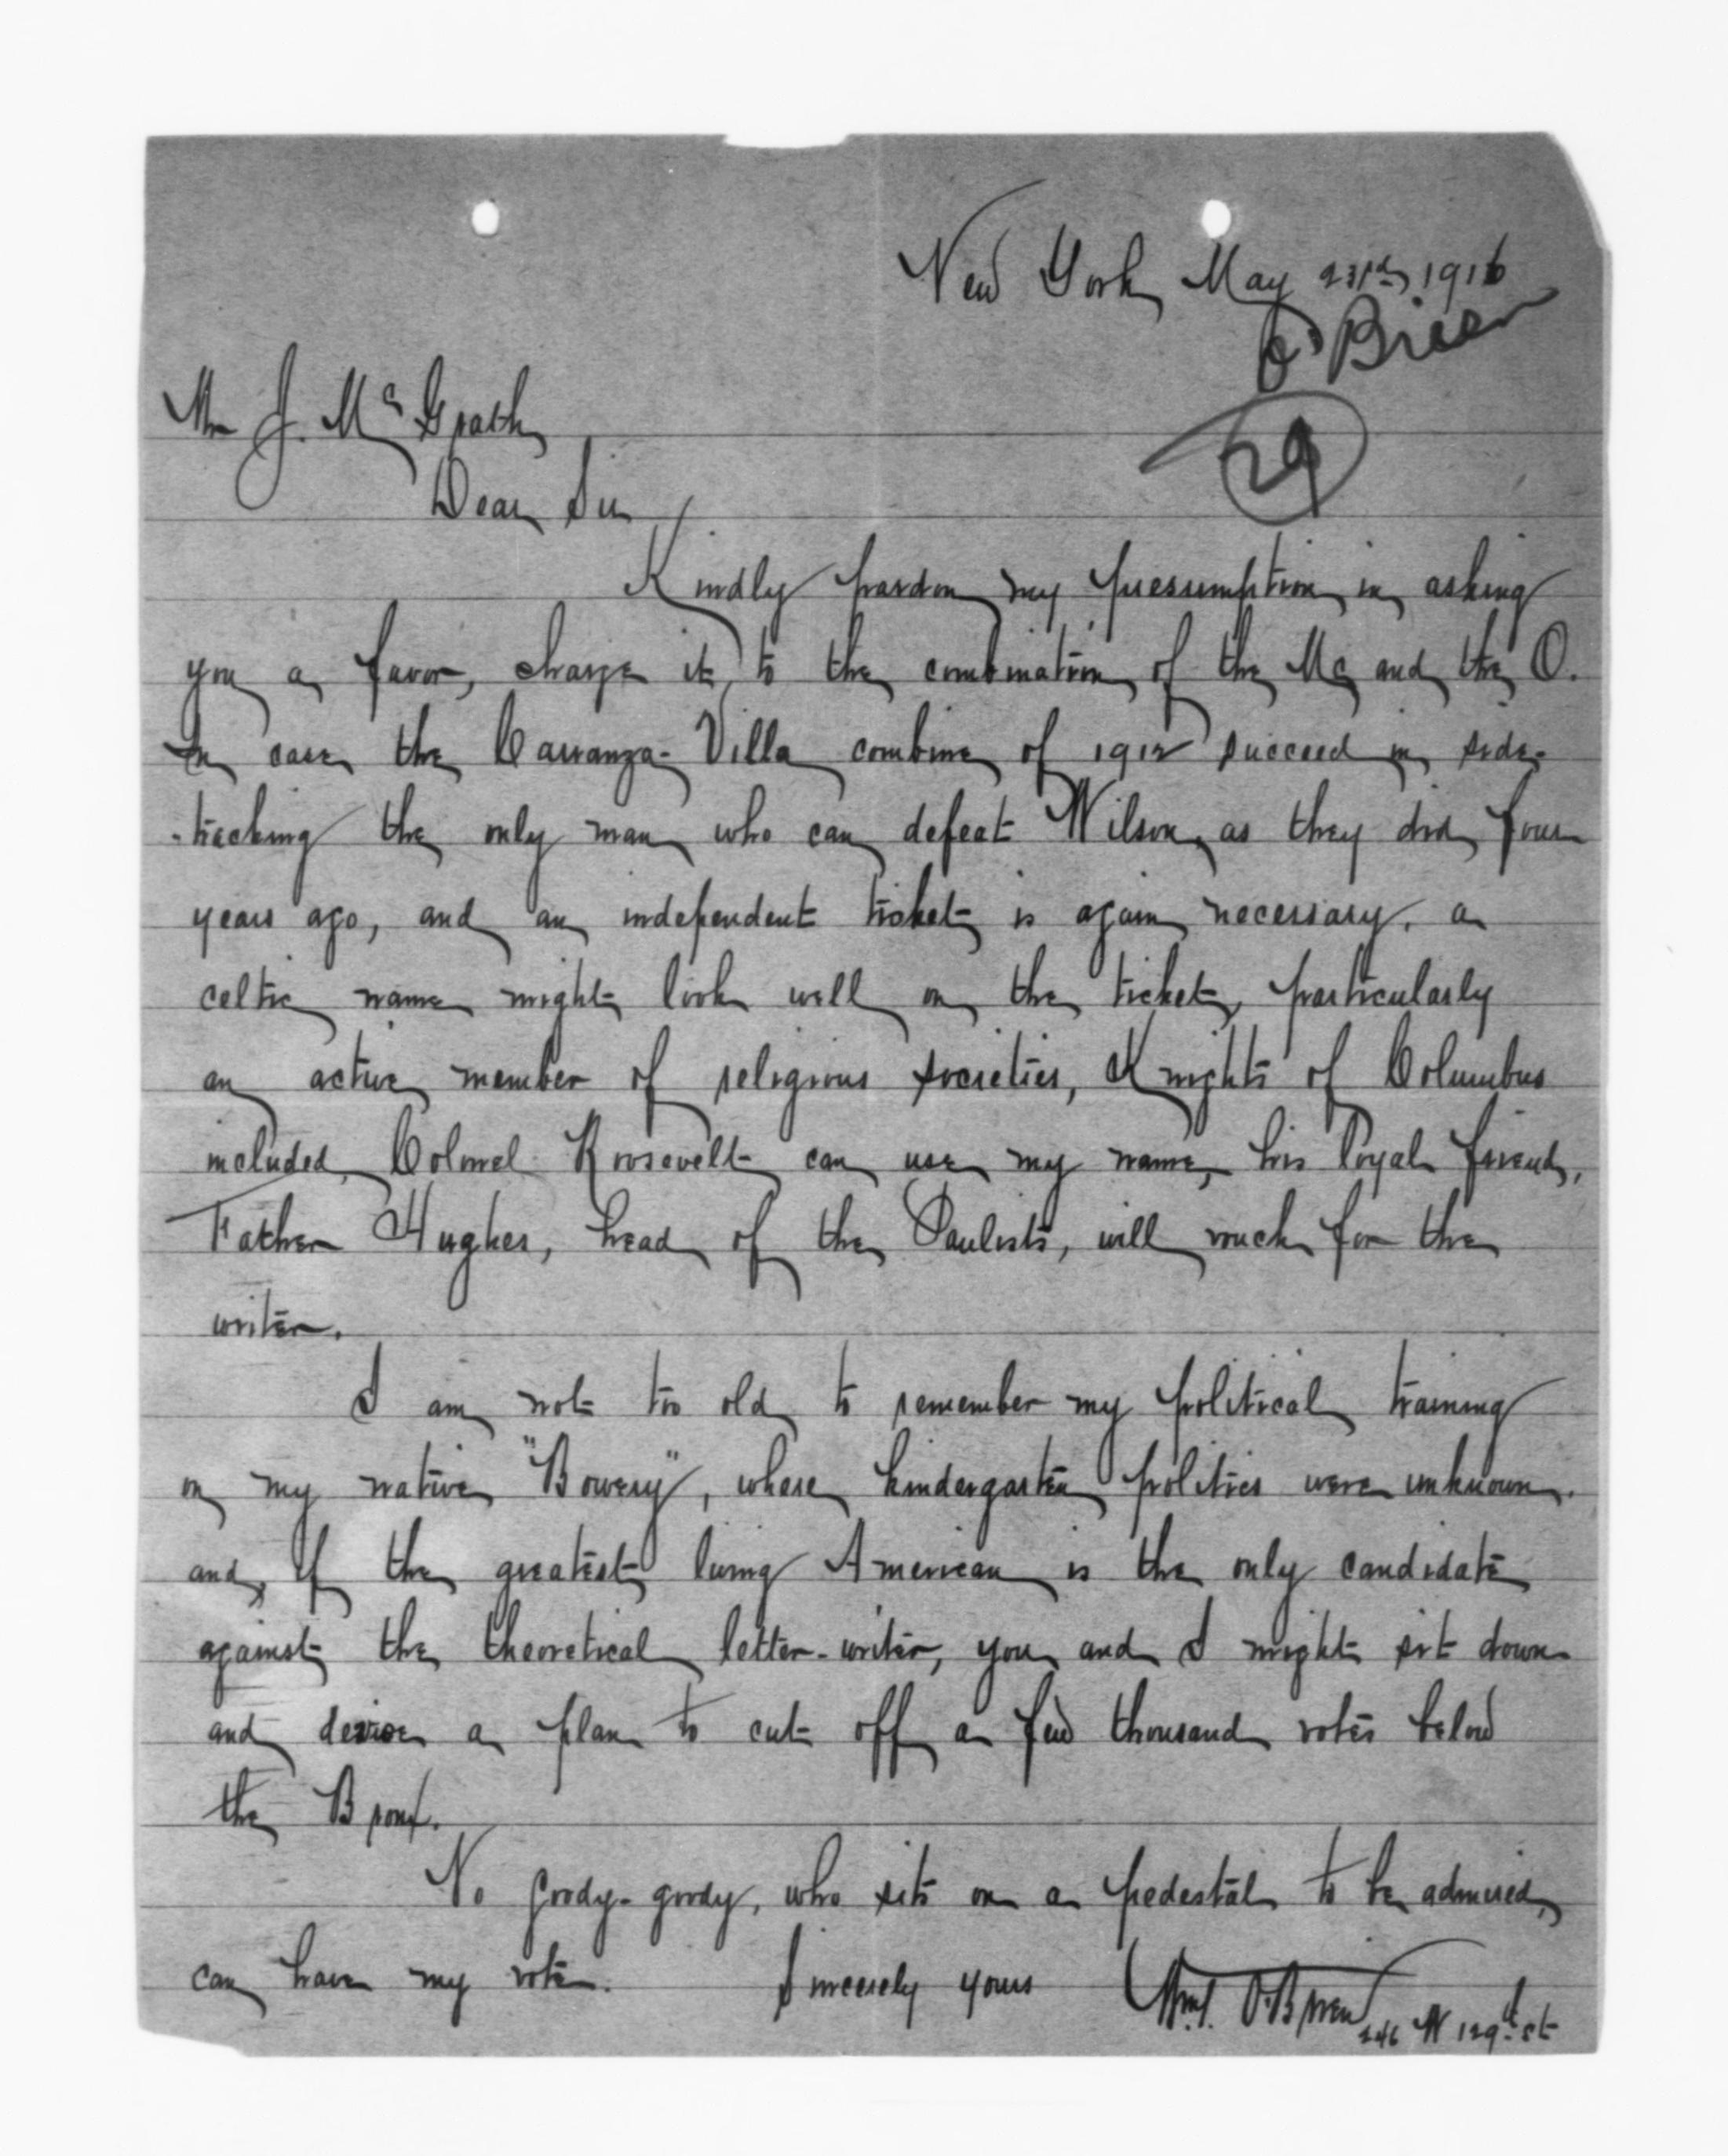 New York May 23rd, 1916
O'Brien
Mr J. McGrath
29
Dear Sir
Kindly pardon my presumption in asking
you a favor, charge it to the combination of the Mc and the O.
In case the Carranza-Villa combine of 1912 succeed in side-
-tracking the only man who can defeat Wilson, as they did four
years ago, and an independent ticket is again necessary, a
celtic name might look well on the ticket, particularly
an active member of religious societies, Knights of Columbus
included, Colonel Roosevelt can use my name, his loyal friend,
Father Hughes, head of the Paulists, will vouch for the
writer.
I am not too old to remember my political training
on my native "Bowery", where kindergarten politics were unknown.
and, if the greatest living American is the only candidate
against the theoretical letter-writer, you and I might sit down
and devise a plan to cut off a few thousand votes below
the Bronx.
No goody-goody, who sits on a pedestal to be admired,
can have my vote. Sincerely yours Wm. O'Brien
246 W 129th st